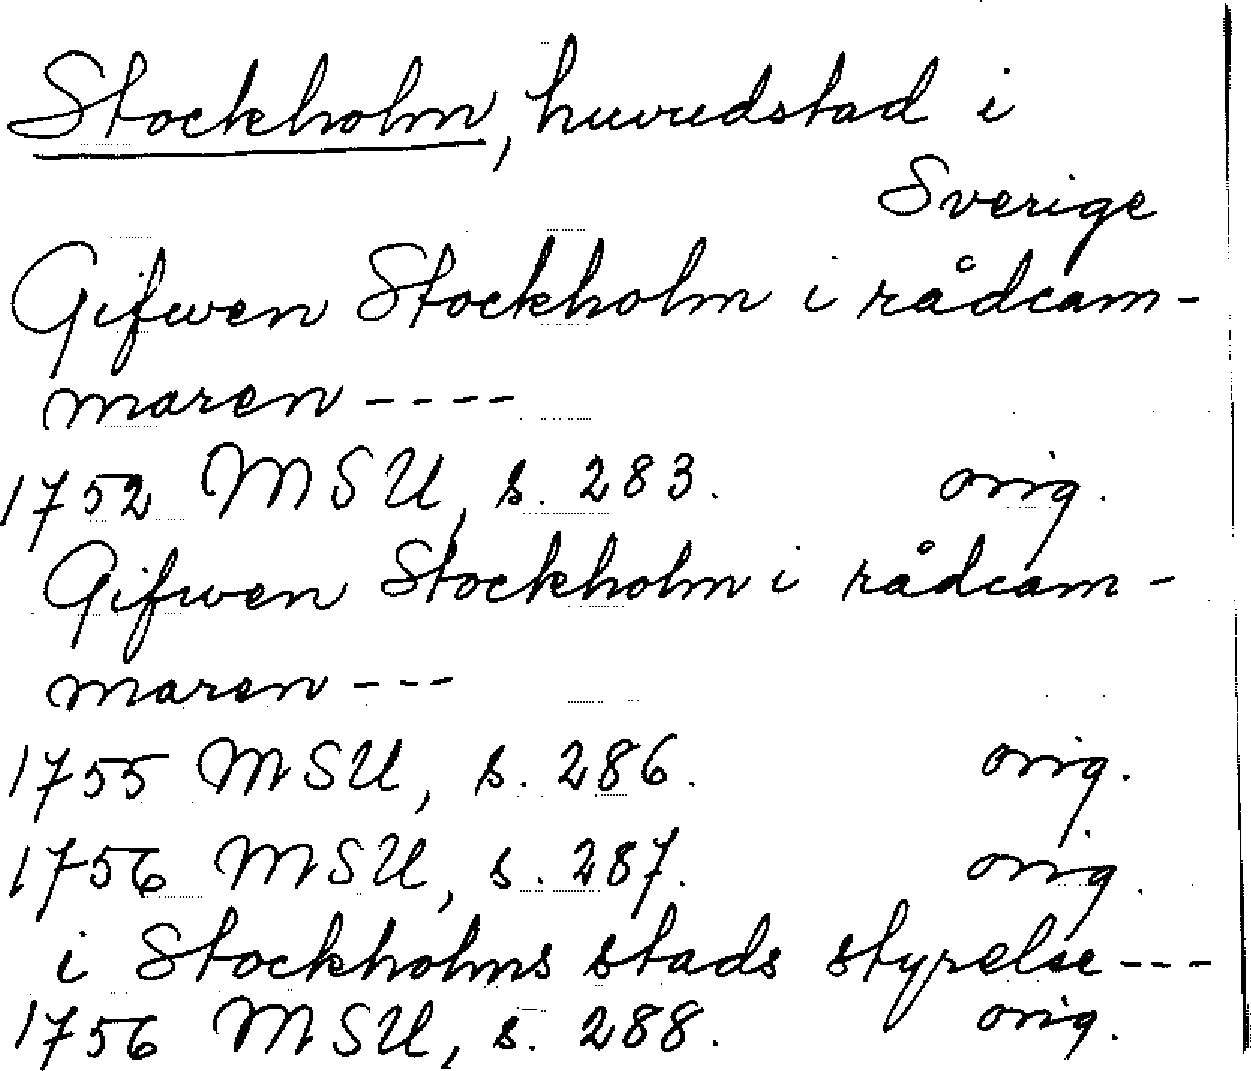 Stockholm, huvudstad i
Sverige
Gifwen Stockholm i rådcam-
maren ----
1752 MSU, s. 283. orig.
Gifwen Stockholm i rådcam-
maren ---
1755 MSU, s. 286. orig.
1756 MSU, s. 287. orig.
i Stockholms stads styrelse ---
1756 MSU, s. 288. orig.